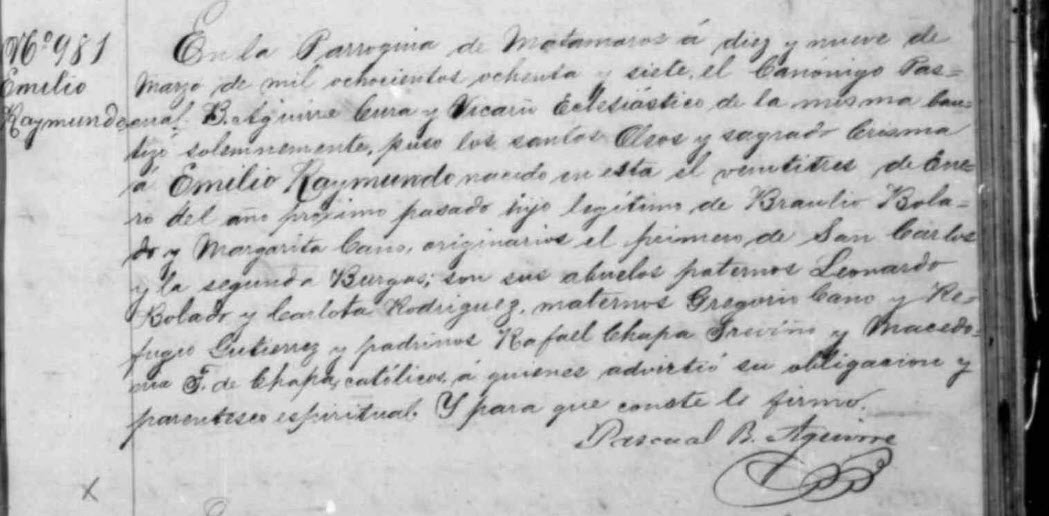 Nº 981
Emilio
Raymundo
En la Parroquia de Matamoros á diez y nueve de
Marzo de mil ochocientos ochenta y siete, el Canónigo Pas=
cual B. Aguirre Cura y Vicario Eclesiástico de la misma bau=
tizó solemnemente, puso los santos Oleos y sagrado Crisma
á Emilio Raymundo nacido en esta el veintitres de Ene=
ro del año próximo pasado hijo legítimo de Braulio Bola=
do y Margarita Cano, originarios el primero de San Carlos
y la segunda Burgos; son sus abuelos paternos Leonardo
Bolado y Carlota Rodriguez, maternos Gregorio Cano y Re=
fugio Gutierrez y padrinos Rafael Chapa Treviño y Macedo=
nia F. de Chapa, católicos, á quienes advirtió su obligacion y
parentesco espiritual. Y para que conste lo firmo.
Pascual B. Aguirre
X